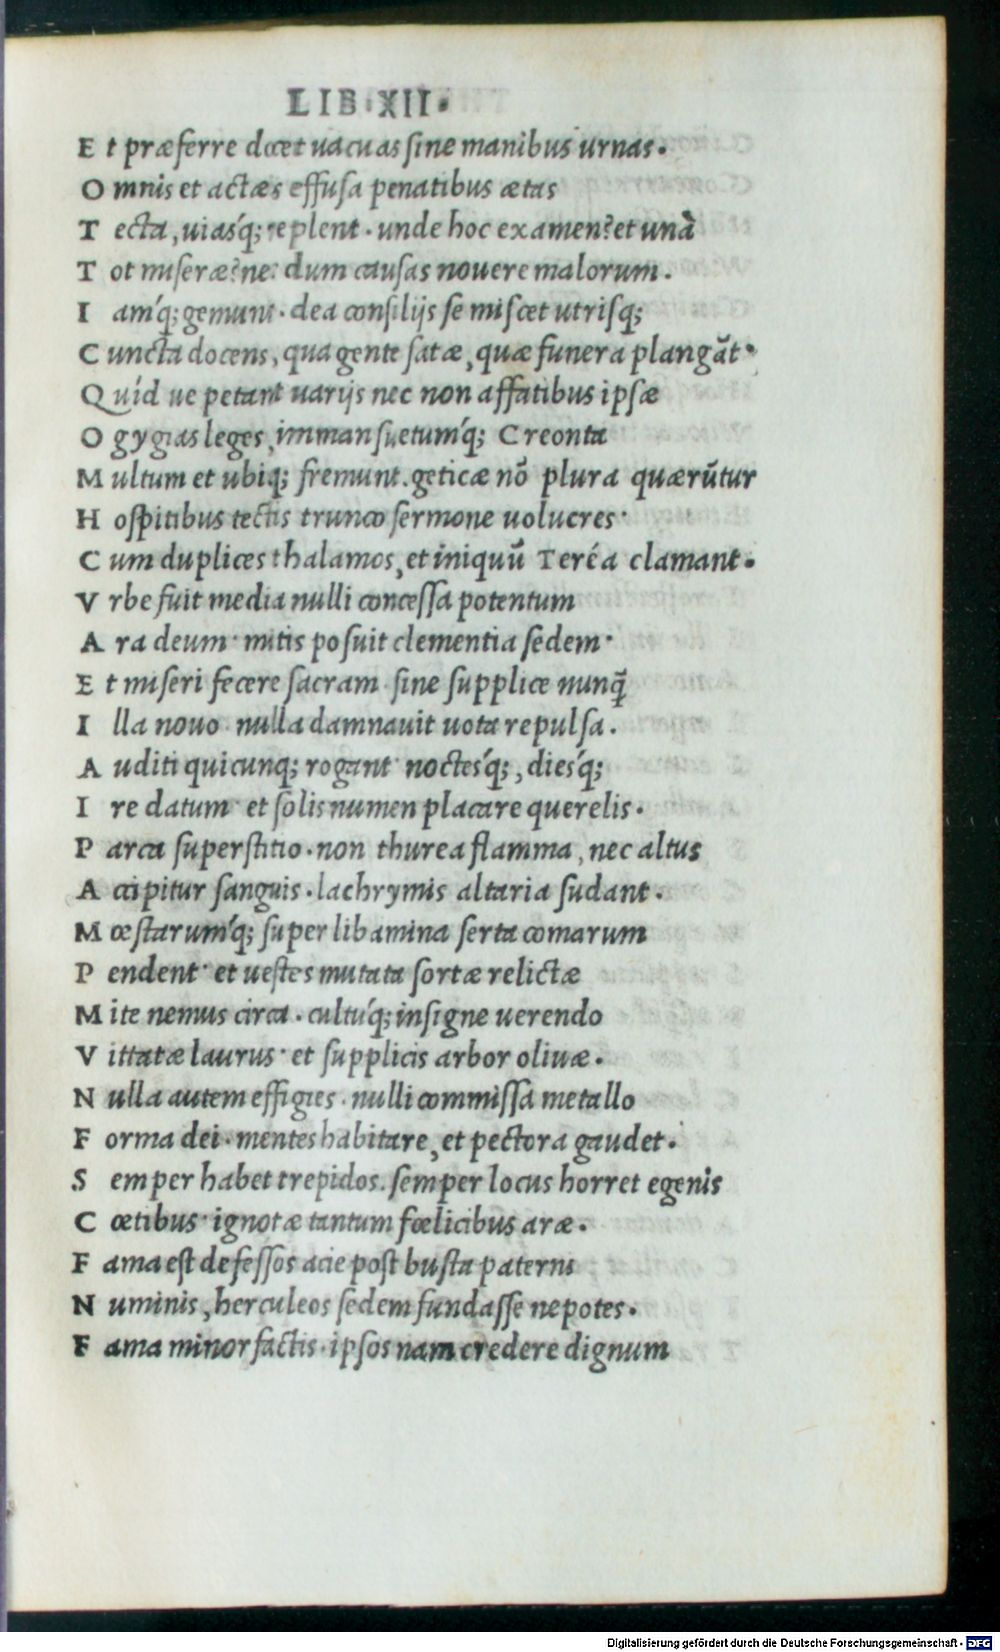 LIB·XII·
E t præferre docet uacuas sine manibus urnas.
O mnis et actæs effusa penatibus ætas
T ecta, uiasq́; replent. unde hoc examen? et unà
T ot miseræ? nec dum causas nouere malorum.
I amq́; gemunt. dea consilijs se miscet utrisq;
C uncta docens, qua gente satæ, quæ funera plangãt.
Q uíd ue petant uarijs nec non affatibus ipsæ
O gygias leges, immansuetumq́; Creonta
M ultum et ubiq; fremunt. geticæ nõ plura quærũtur
H ospitibus tectis trunco sermone uolucres·
C um duplices thalamos, et iniquũ Teréa clamant.
V rbe fuit media nulli concessa potentum
A ra deum· mitis posuit clementia sedem·
E t miseri fecere sacram· sine supplice nunq̃
I lla nouo· nulla damnauit uota repulsa.
A uditi quicunq; rogant· noctesq́;, diesq́;
I re datum· et solis numen placare querelis.
P arca superstitio. non thurea flamma, nec altus
A ccipitur sanguis. lachrymis altaria sudant.
M œstarumq́; super libamina serta comarum
P endent· et uestes mutata sortæ relictæ
M ite nemus circa. cultuq́; insigne uerendo
V ittatæ laurus· et supplicis arbor oliuæ.
N ulla autem effigies. nulli commissa metallo
F orma dei. mentes habitare, et pectora gaudet.
S emper habet trepidos. semper locus horret egenis
C œtibus· ignotæ tantum fœlicibus aræ.
F ama est defessos acie post busta paterni
N uminis, herculeos sedem fundasse nepotes.
F ama minor factis· ipsos nam credere dignum
Digitalisierung gefördert durch die Deutsche Forschungsgemeinschaft - DFG